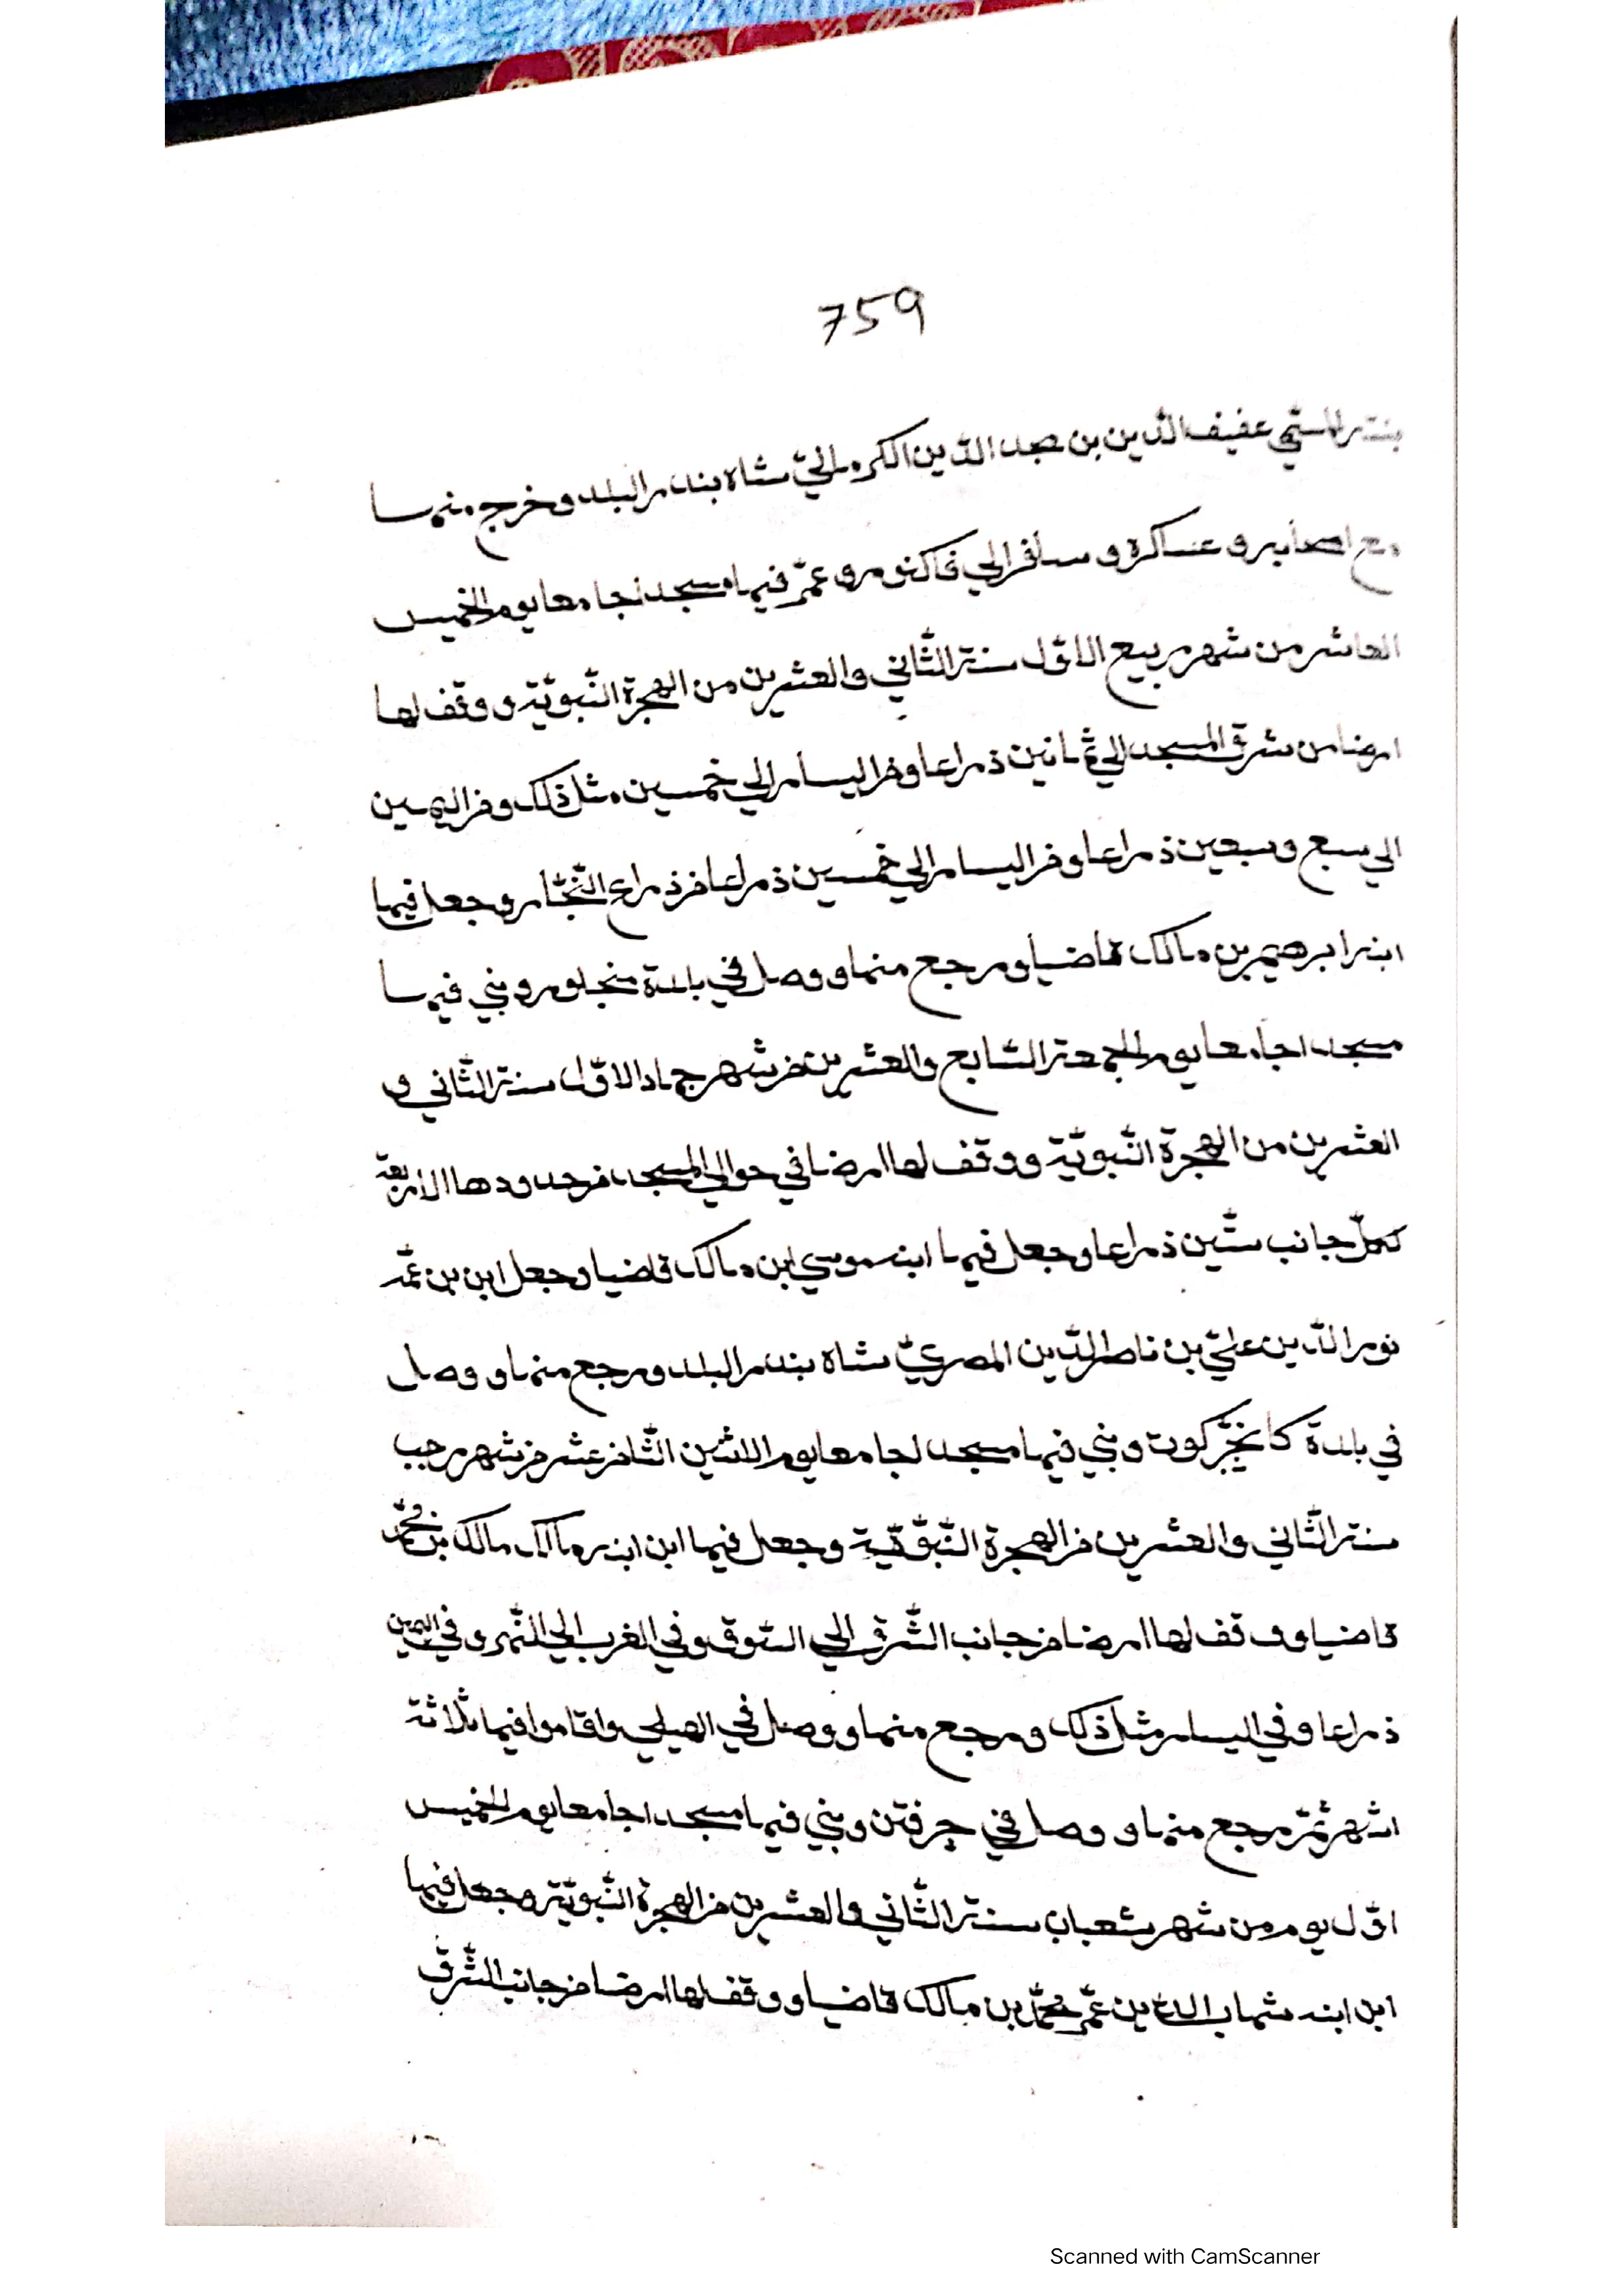 759
بنته المستي عفيف الدّين بن الدّين الكرماني شاه بندر البلد وخرج منها
مع اصحابه و عساكره و سافر الي فاكنور و عمّر فيها مسجدا جامعا يوم الخميس
العاشر من شهر ربيع الاوّل سنة الثّاني والعشرين من الهجرة النّبويّة و وقف لها
ارضا من شرق المسجد الي ثمانين ذراعا ومن اليسار الي خمسين مثل ذلك ومن اليمين
الي سبع وسبعين ذراعا ومن اليسار الي خمسين ذراعا من ذراع النّجّار وجعل فيها
ابنه ابرهيم بن مالك قاضيا ورجع منها و وصل في بلدة منجلور وبني فيها
مسجدا جامعا يوم الجمعة السّابع والعشرين من شهر جماد الاوّل سنة الثّاني و
العشرين من الهجرة النّبويّة ووقف لها ارضا في حوالي المسجد من حدودها الاربعة
كلّ جانب ستّين ذراعا وجعل فيها ابنه موسي ابن مالك قاضيا وجعل ابن بن عمّه
نور الدّين عليّ بن ناصر الدّين المصريّ شاه بندر البلد ورجع منها و وصل
في بلدة كانجركوت وبني فيها مسجدا جامعا يوم الاثنين الثّامن عشر من شهر رجب
سنة الثّاني والعشرين من الهجرة النّبوّيّة وجعل فيها ابن ابنه مالك مالك بن محمّد
قاضيا ووقف لها ارضا من جانب الشّرق الي السّوق وفي الغرب الي النّهر وفي اليمين
ذراعا وفي اليسار مثل ذلك ورجع منها و وصل في الهيلي واقاموا فيها ثلاثة
اشهر ثمّ رجع منها و وصل في جرفتن وبني فيها مسجدا جامعا يوم الخميس
اوّل يوم من شهر شعبان سنة الثّاني والعشرين من الهجرة النّبويّة وجعل فيها
ابن ابنه شهاب الدّين عمر بن محمّد بن مالك قاضيا ووقف لها ارضا من جانب الشّرق
Scanned with CamScanner